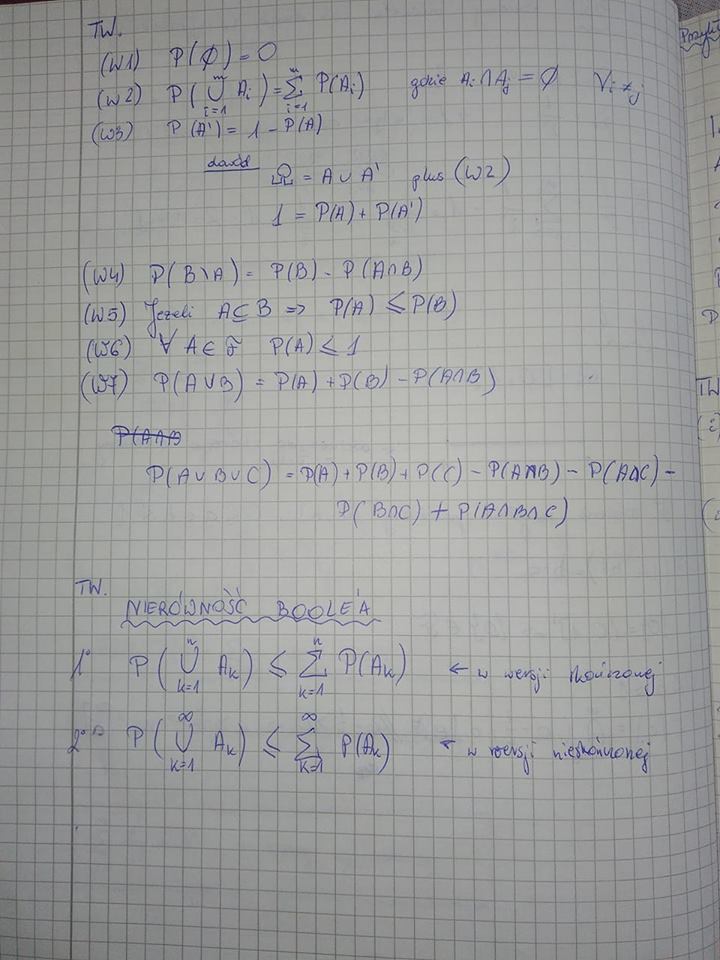 TW.
(W1) P(∅) = 0
(W2) P(⋃_{i=1}^{n} A_i) = ∑_{i=1}^{n} P(A_i) gdzie A_i ∩ A_j = ∅ ∀ i ≠ j
(W3) P(A') = 1 - P(A)
dowód Ω = A ∪ A' plus (W2)
1 = P(A) + P(A')
(W4) P(B \ A) = P(B) - P(A∩B)
(W5) Jeżeli A ⊆ B => P(A) ≤ P(B)
(W6) ∀ A ∈ F P(A) ≤ 1
(W7) P(A∪B) = P(A) + P(B) - P(A∩B)
P(A∪B∪C) = P(A) + P(B) + P(C) - P(A∩B) - P(A∩C) -
P(B∩C) + P(A∩B∩C)
TW.
NIERÓWNOŚĆ BOOLE'A
1° P(⋃_{k=1}^{n} A_k) ≤ ∑_{k=1}^{n} P(A_k) ← w wersji skończonej
2° P(⋃_{k=1}^{∞} A_k) ≤ ∑_{k=1}^{∞} P(A_k) ← w wersji nieskończonej
TW